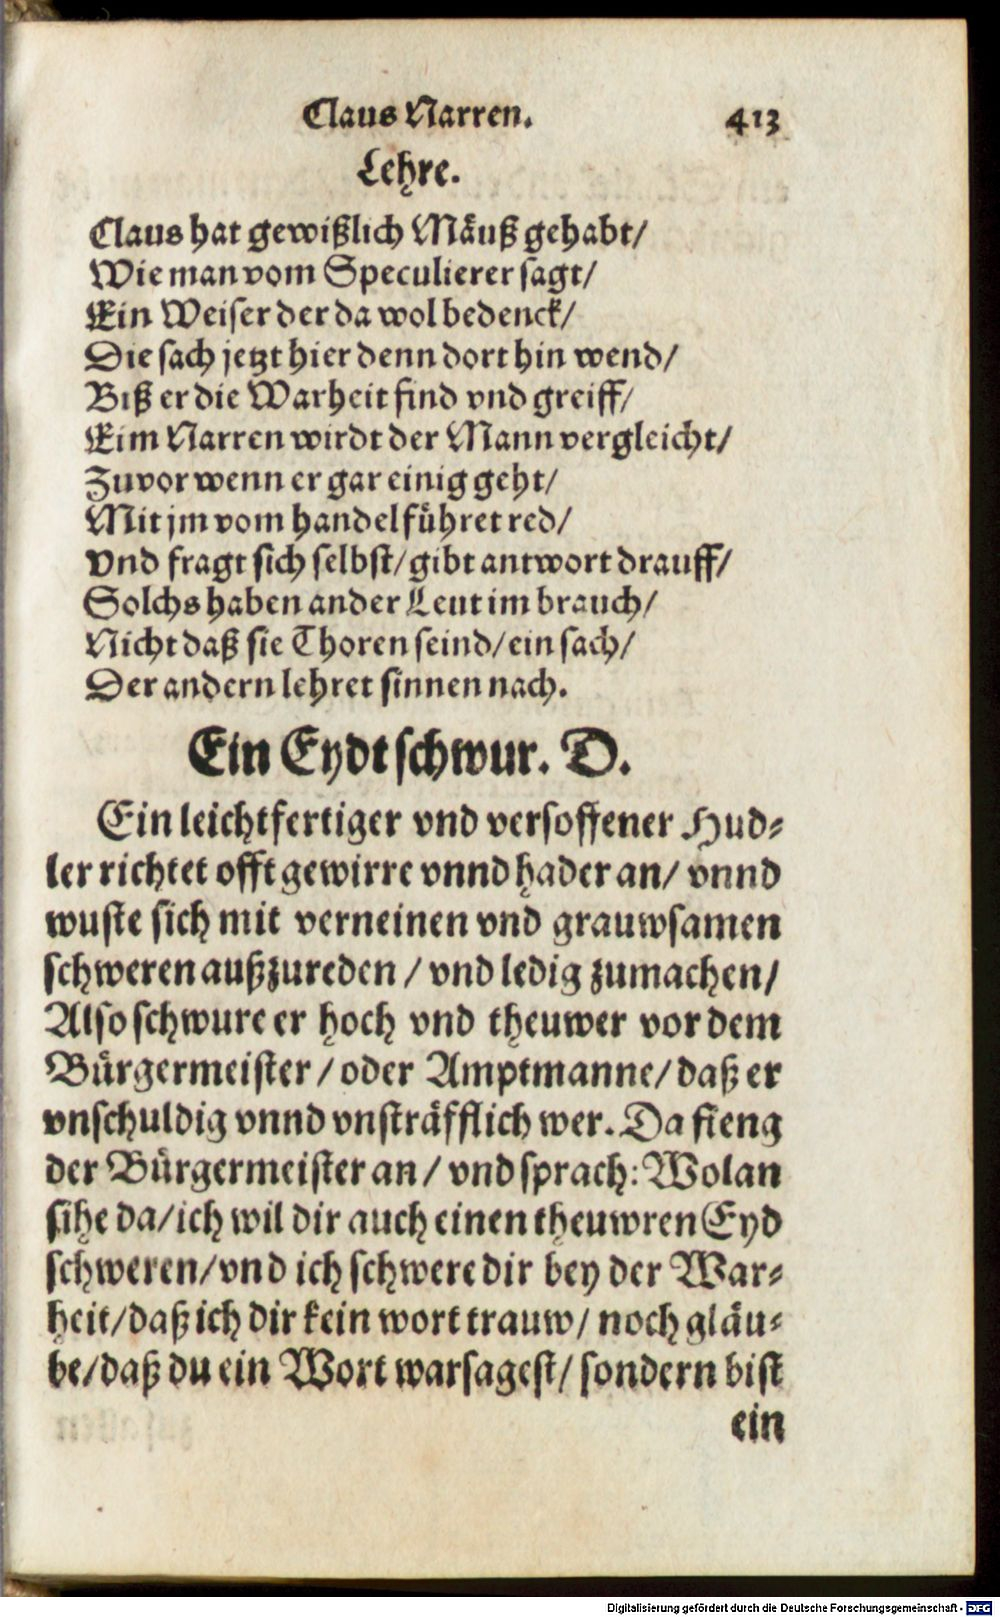 Claus Narren. 413
Lehre.
Claus hat gewißlich Mäuß gehabt/
Wie man vom Speculierer sagt/
Ein Weiser der da wol bedenck/
Die sach jetzt hier denn dort hin wend/
Biß er die Warheit find vnd greiff/
Eim Narren wirdt der Mann vergleicht/
Zuvor wenn er gar einig geht/
Mit jm vom handel führet red/
Vnd fragt sich selbst/gibt antwort drauff/
Solchs haben ander Leut im brauch/
Nicht daß sie Thoren seind/ein sach/
Der andern lehret sinnen nach.
Ein Eydtschwur. D.
Ein leichtfertiger vnd versoffener Hud-
ler richtet offt gewirre vnnd hader an/ vnnd
wuste sich mit verneinen vnd grauwsamen
schweren außzureden / vnd ledig zumachen/
Also schwure er hoch vnd theuwer vor dem
Bürgermeister / oder Amptmanne/ daß er
vnschuldig vnnd vnsträfflich wer. Da fieng
der Bürgermeister an / vnd sprach: Wolan
sihe da/ich wil dir auch einen theuwren Eyd
schweren/vnd ich schwere dir bey der War-
heit/daß ich dir kein wort trauw/ noch gläu-
be/daß du ein Wort warsagest/ sondern bist
ein
Digitalisierung gefördert durch die Deutsche Forschungsgemeinschaft - DFG